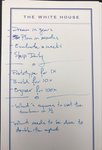 THE WHITE HOUSE
- Dream in years
- Plan in months
- Evaluate in weeks
- Ship daily
- Prototype for 1x
- Build for 10x
- Engineer for 100x
- What's required to cut the timeline in ½?
- What needs to be done to double the impact